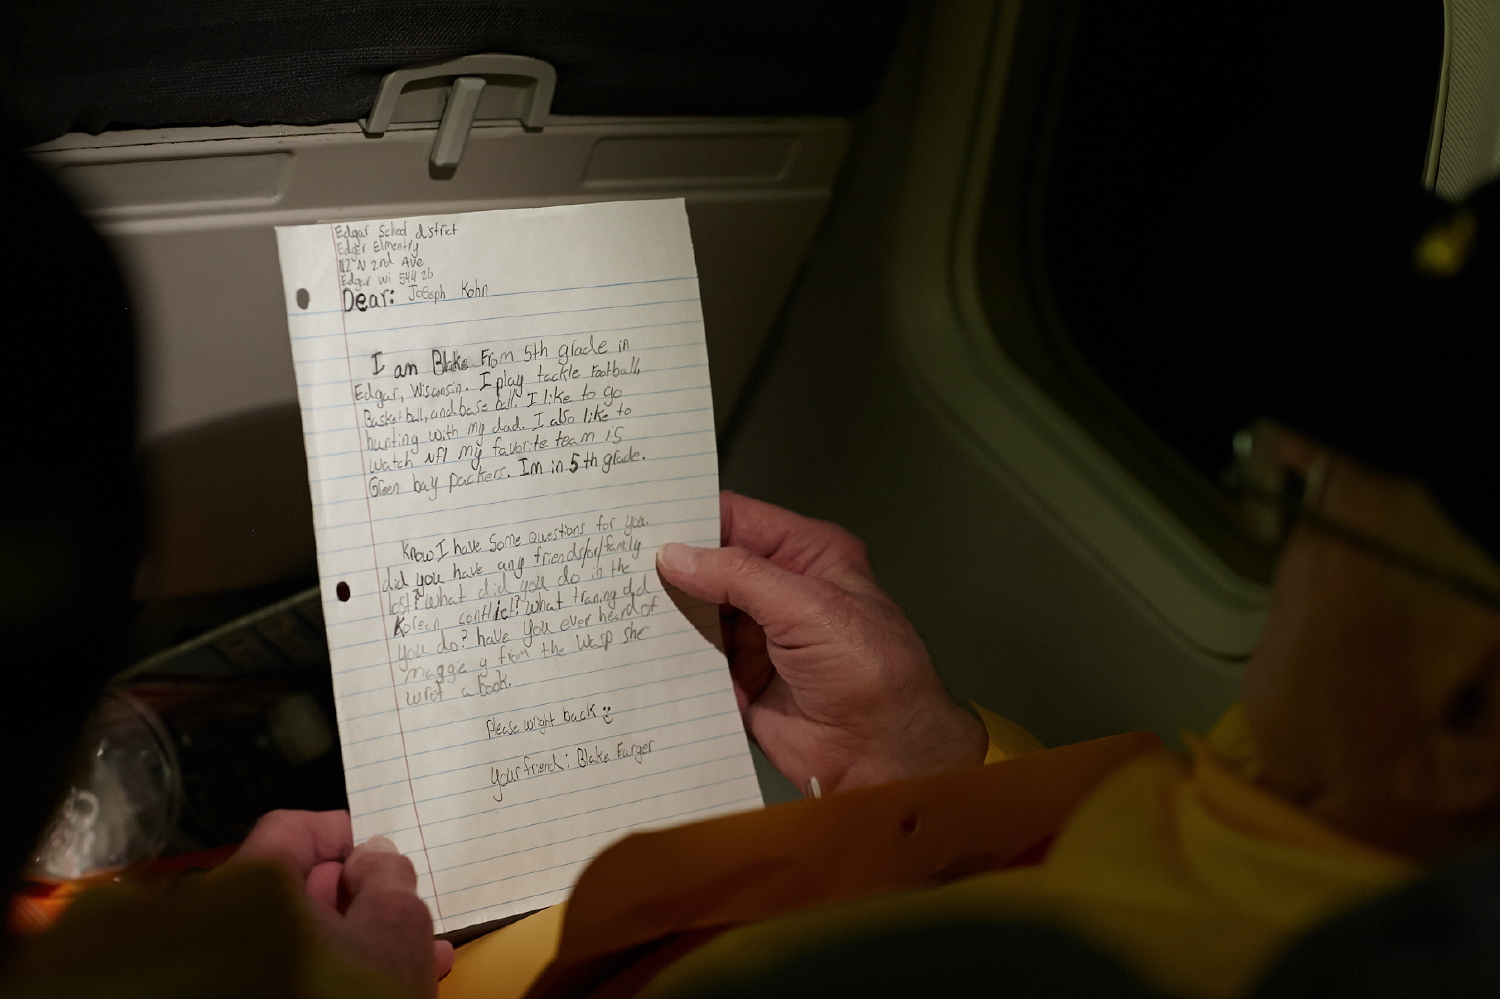 Edgar School dstrict
Edger Elmentry
112 N 2nd Ave
Edgar Wi 54426
Dear: Joseph Kohn
I am Blake From 5th grade in
Edgar, Wisconsin. I play tackle Football,
Basketball, and base ball. I like to go
hunting with my dad. I also like to
watch nfl my favorite team is
Green bay packers. Im in 5th grade.
Know I have some questions for you.
did you have any friends/or/family
lost? what did you do in the
Korean conflict? What traning did
you do? have you ever heard of
maggey from the wasp she
wrot a book.
Please wright back
your friend: Blake Farger